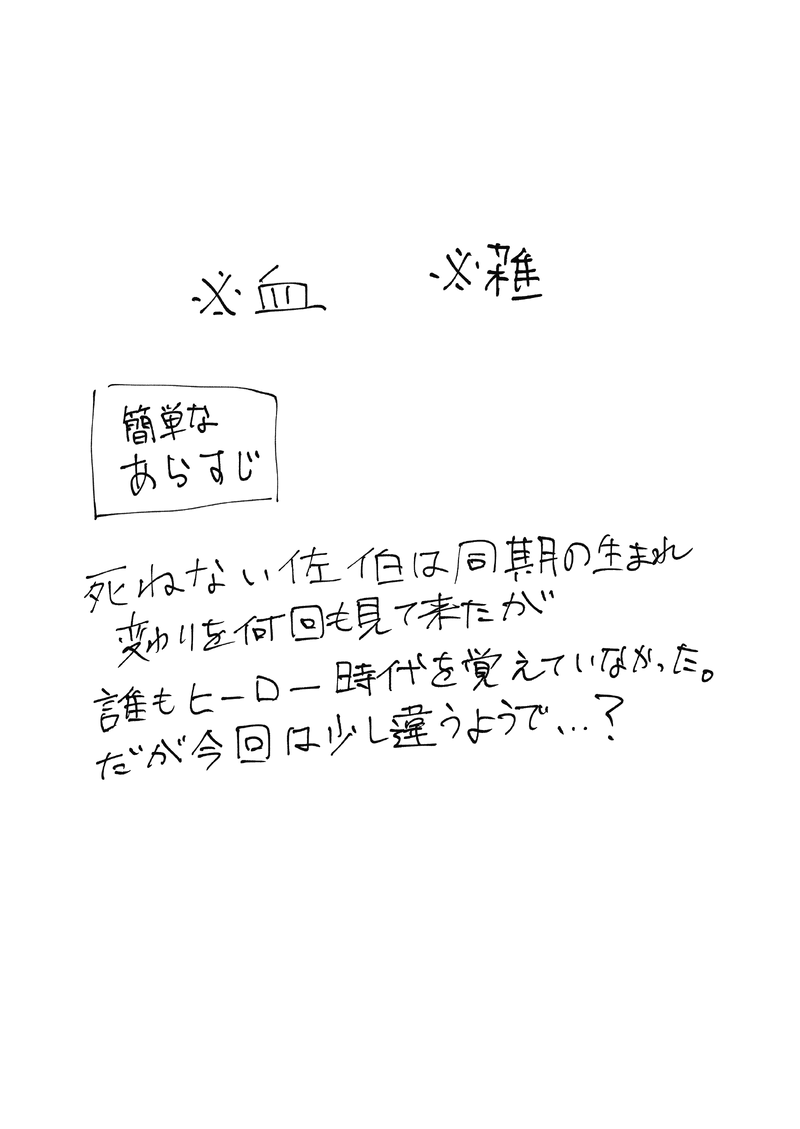 ※血 ※雑
簡単な
あらすじ
死ねない佐伯は同期の生まれ
変わりを何回も見て来たが
誰もヒーロー時代を覚えていなかった。
だが今回は少し違うようで…?